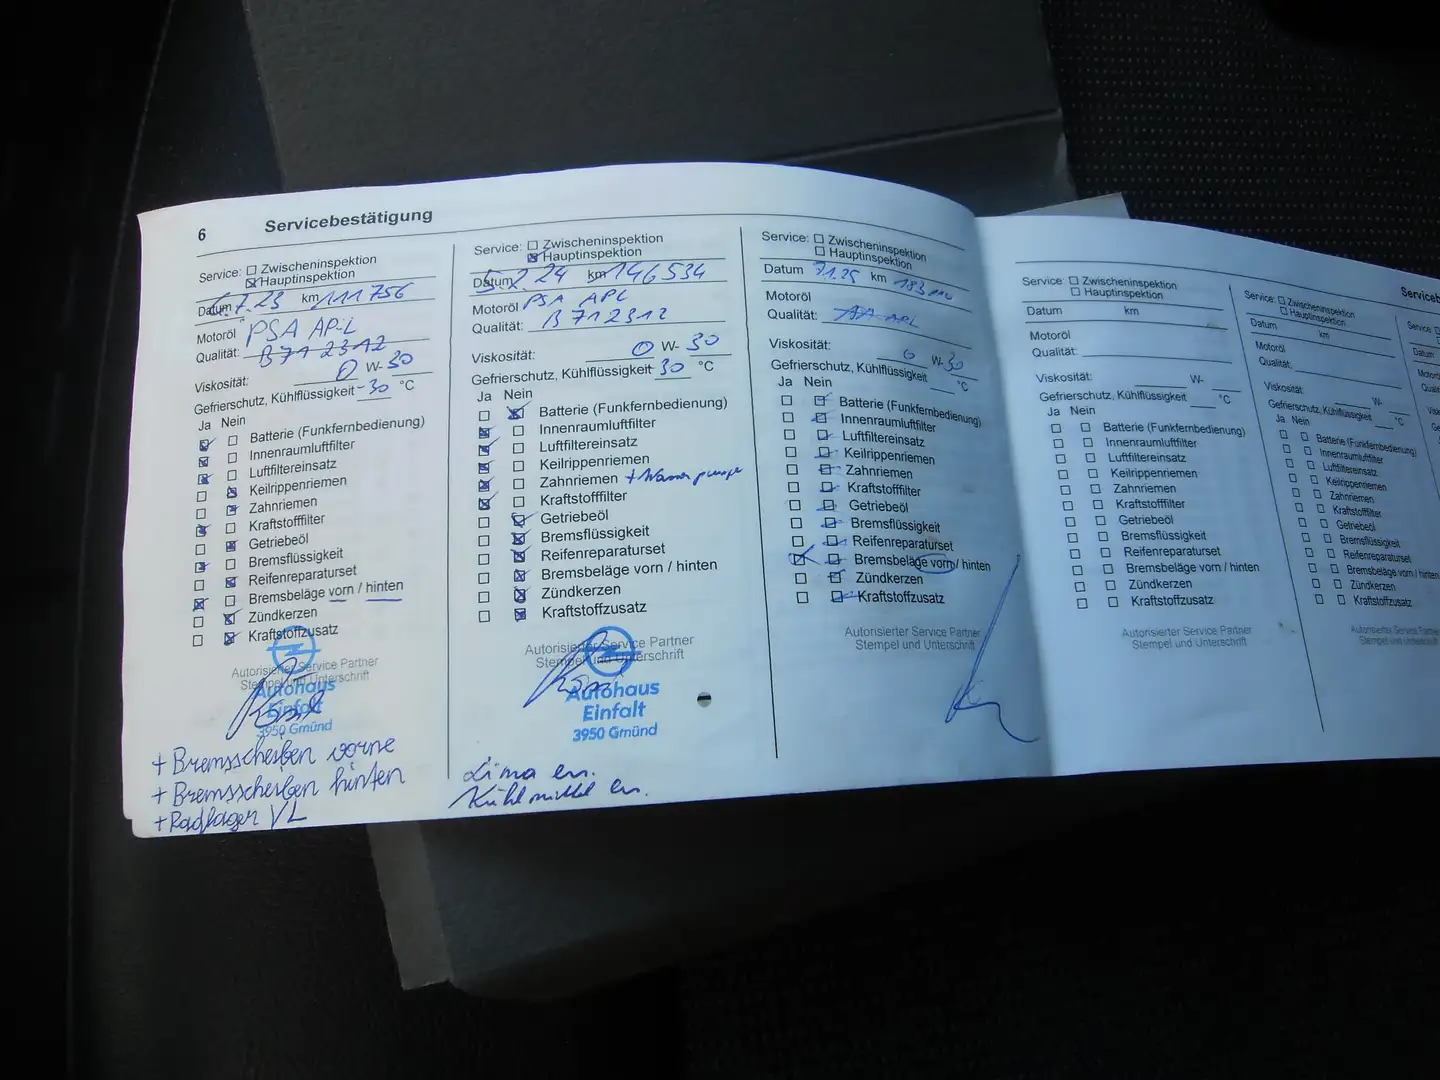 6 Servicebestätigung
Service: Zwischeninspektion
Hauptinspektion
Datum 6.7.23 km 111756
Motoröl PSA AP-L
Qualität: B71 2312
Viskosität: 0 W- 30
Gefrierschutz, Kühlflüssigkeit -30 °C
Ja Nein
Batterie (Funkfernbedienung)
Innenraumluftfilter
Luftfiltereinsatz
Keilrippenriemen
Zahnriemen
Kraftstofffilter
Getriebeöl
Bremsflüssigkeit
Reifenreparaturset
Bremsbeläge vorn / hinten
Zündkerzen
Kraftstoffzusatz
Autorisierter Service Partner
Stempel und Unterschrift
Autohaus
Einfalt
3950 Gmünd
+ Bremsscheiben vorne
+ Bremsscheiben hinten
+ Radlager VL
Service: Zwischeninspektion
Hauptinspektion
Datum 5.2.24 km 146534
Motoröl PSA APL
Qualität: B712312
Viskosität: 0 W- 30
Gefrierschutz, Kühlflüssigkeit 30 °C
Ja Nein
Batterie (Funkfernbedienung)
Innenraumluftfilter
Luftfiltereinsatz
Keilrippenriemen
Zahnriemen + Wasserpumpe
Kraftstofffilter
Getriebeöl
Bremsflüssigkeit
Reifenreparaturset
Bremsbeläge vorn / hinten
Zündkerzen
Kraftstoffzusatz
Autorisierter Service Partner
Stempel und Unterschrift
Autohaus
Einfalt
3950 Gmünd
Lima en.
Kühlmittel en.
Service: Zwischeninspektion
Hauptinspektion
Datum km
Motoröl
Qualität: APL
Viskosität: 0 W- 30
Gefrierschutz, Kühlflüssigkeit °C
Ja Nein
Batterie (Funkfernbedienung)
Innenraumluftfilter
Luftfiltereinsatz
Keilrippenriemen
Zahnriemen
Kraftstofffilter
Getriebeöl
Bremsflüssigkeit
Reifenreparaturset
Bremsbeläge vorn / hinten
Zündkerzen
Kraftstoffzusatz
Autorisierter Service Partner
Stempel und Unterschrift
Service: Zwischeninspektion
Hauptinspektion
Datum km
Motoröl
Qualität:
Viskosität: W-
Gefrierschutz, Kühlflüssigkeit °C
Ja Nein
Batterie (Funkfernbedienung)
Innenraumluftfilter
Luftfiltereinsatz
Keilrippenriemen
Zahnriemen
Kraftstofffilter
Getriebeöl
Bremsflüssigkeit
Reifenreparaturset
Bremsbeläge vorn / hinten
Zündkerzen
Kraftstoffzusatz
Autorisierter Service Partner
Stempel und Unterschrift
Service: Zwischeninspektion
Hauptinspektion
Datum km
Motoröl
Qualität:
Viskosität: W-
Gefrierschutz, Kühlflüssigkeit °C
Ja Nein
Batterie (Funkfernbedienung)
Innenraumluftfilter
Luftfiltereinsatz
Keilrippenriemen
Zahnriemen
Kraftstofffilter
Getriebeöl
Bremsflüssigkeit
Reifenreparaturset
Bremsbeläge vorn / hinten
Zündkerzen
Kraftstoffzusatz
Autorisierter Service Partner
Datum